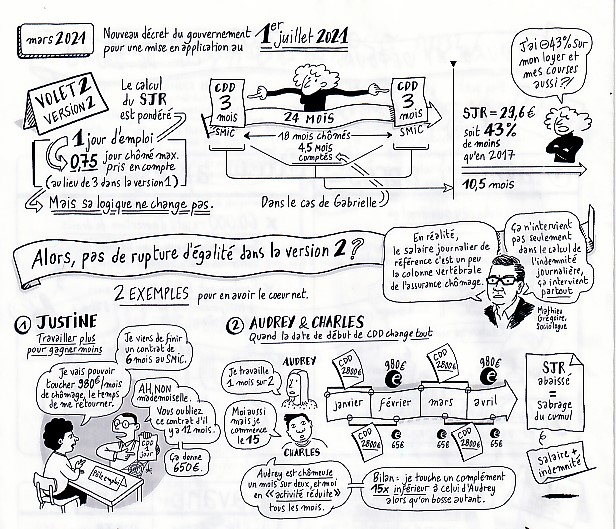 mars 2021
Nouveau décret du gouvernement
pour une mise en application au
1er juillet 2021
VOLET 2
VERSION 2
Le calcul
du SJR
est pondéré
1 jour d'emploi
0,75 jour chômé max.
pris en compte
(au lieu de 3 dans la version 1)
Mais sa logique ne change pas.
CDD
3
mois
SMIC
24 MOIS
18 mois chômés
4,5 mois
comptés
CDD
3
mois
SMIC
Dans le cas de Gabrielle
J'ai -43% sur
mon loyer et
mes courses
aussi ?!
SJR = 29,6€
soit 43%
de moins
qu'en 2017
10,5 mois
Alors, pas de rupture d'égalité dans la version 2 ?
En réalité,
le salaire journalier de
référence c'est un peu
la colonne vertébrale
de l'assurance chômage.
Ça n'intervient
pas seulement
dans le calcul de
l'indemnité
journalière,
ça intervient
partout
Mathieu
Grégoire,
Sociologue
2 EXEMPLES pour en avoir le coeur net.
1 JUSTINE
Travailler plus
pour gagner moins
Je viens de finir
un contrat de
6 mois au SMIC.
Je vais pouvoir
toucher 980€/mois
de chômage, le temps
de me retourner.
AH, NON
mademoiselle.
Vous oubliez
ce contrat d'il
y a 12 mois.
CDD
1
jour
Ça donne
650€.
Pôle emploi
2 AUDREY & CHARLES
Quand la date de début de CDD change tout
AUDREY
Je travaille
1 mois sur 2
Moi aussi
mais je
commence
le 15
CHARLES
CDD
2800€
980€
€
CDD
2800€
980€
€
janvier
février
mars
avril
CDD
2800€
€
65€
CDD
2800€
€
65€
Audrey est chômeuse
un mois sur deux, et moi
en « activité réduite »
tous les mois.
Bilan = je touche un complément
15x inférieur à celui d'Audrey
alors qu'on bosse autant.
SJR
abaissé
=
Sabrage
du cumul
salaire +
indemnité